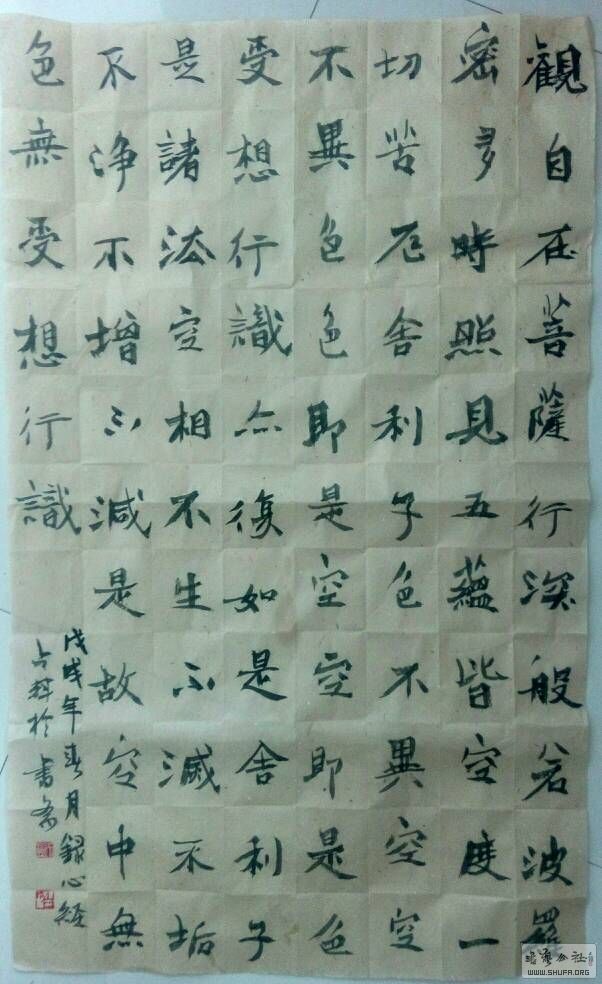 觀自在菩薩行深般若波羅
密多時照見五蘊皆空度一
切苦厄舍利子色不異空空
不異色色即是空空即是色
受想行識亦復如是舍利子
是諸法空相不生不滅不垢
不淨不增不減是故空中無
色無受想行識
戊戌年春月錄心經
於書
WWW.SHUFA.ORG